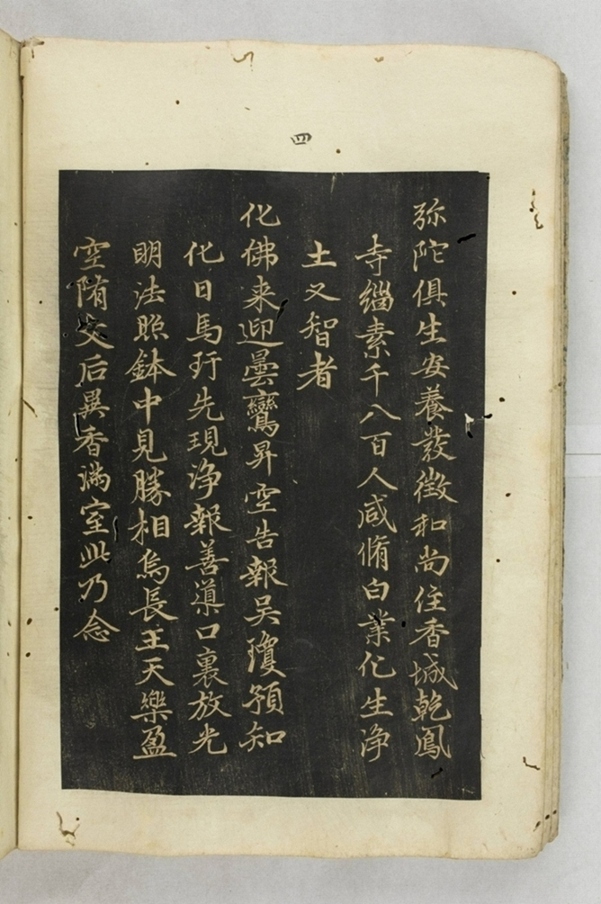 四
弥陀俱生安養發徵和尚住香城乾鳳
寺緇素千八百人咸脩白業化生淨
土又智者
化佛来迎曇鸞昇空告報吴瓊預知
化日馬玗先現淨報善導口裏放光
明法照鉢中見勝相烏長王天樂盈
空隋文后異香滿室此乃念